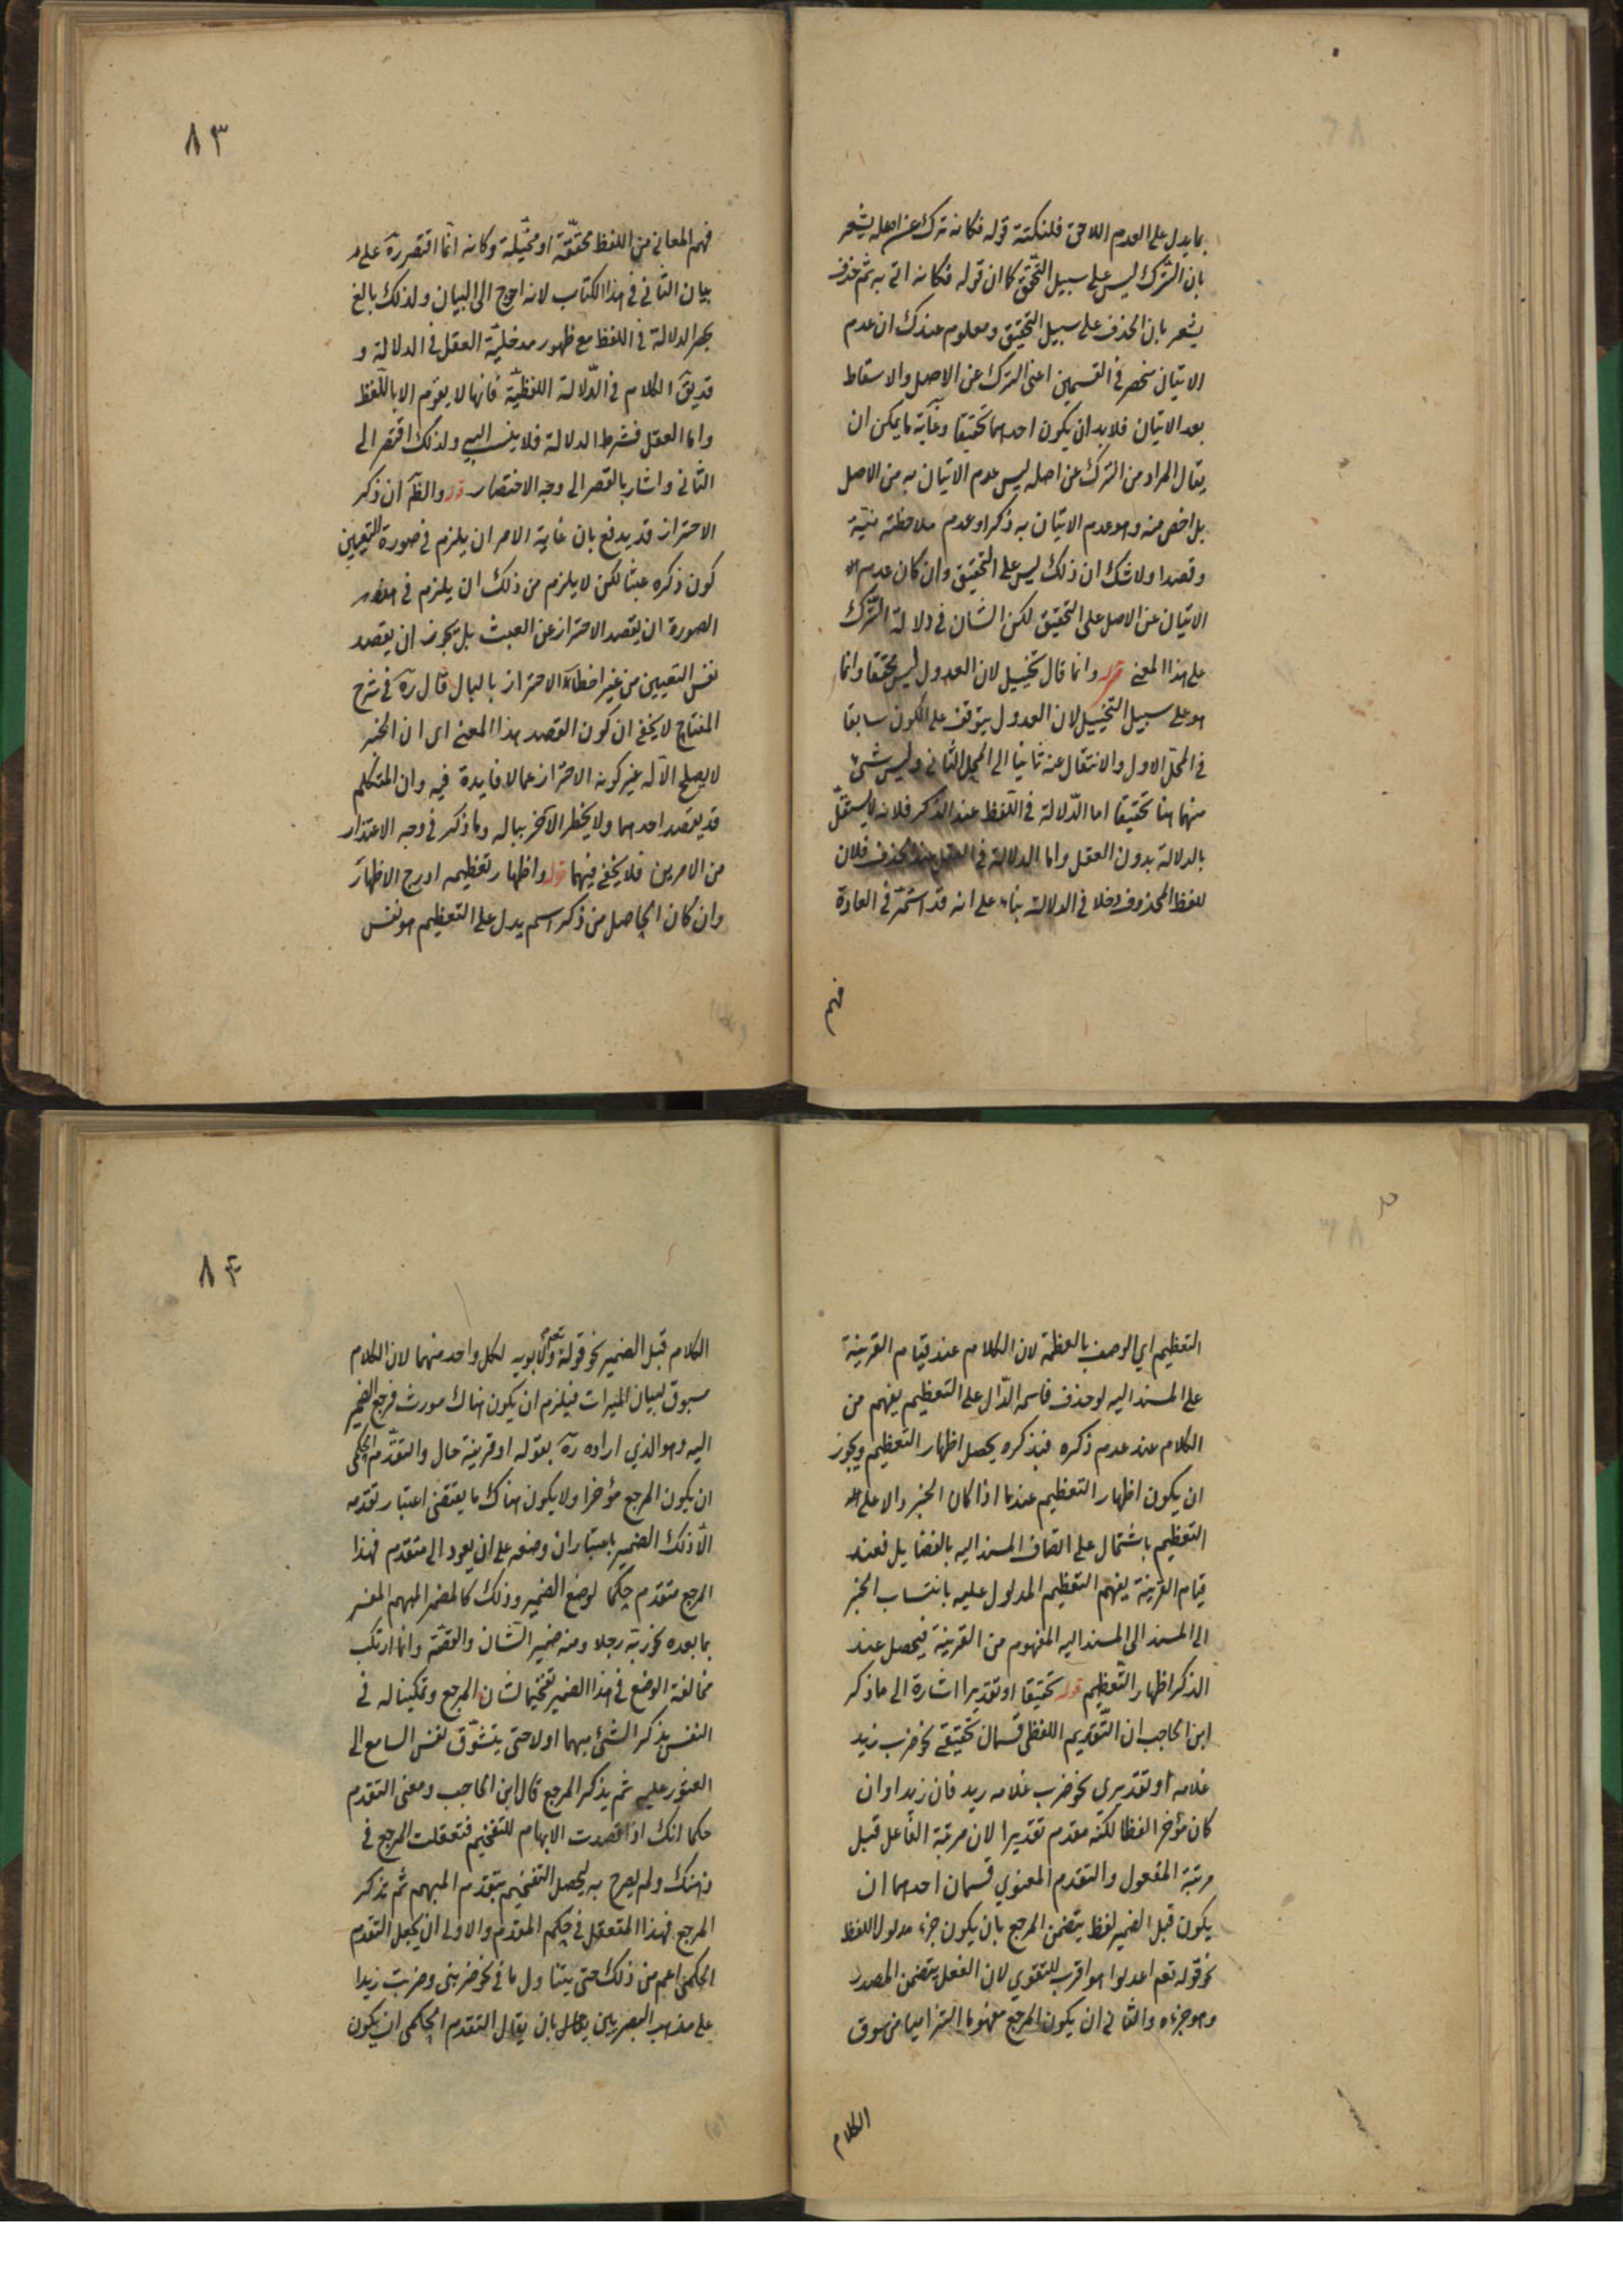 بما يدل على العدم اللاحق فلنكتة قوله فكانه ترك عن اصله يشعر
بان الترك ليس على سبيل التحقق كما ان قوله فكانه اتى به ثم حذف
يشعر بان الحذف على سبيل التحقيق ومعلوم عندك ان عدم
الاتيان منحصر في القسمين اعنى الترك عن الاصل والاسقاط
بعد الاتيان فلا بد ان يكون احدهما تحقيقا وغاية ما يمكن ان
يقال المراد من الترك عن اصله ليس عدم الاتيان به من الاصل
بل اخص منه وهو عدم الاتيان به ذكرا وعدم ملاحظته نية
وقصدا ولا شك ان ذلك ليس على التحقيق وان كان عدم
الاتيان عن الاصل على التحقيق لكن الشان في دلالة الترك
على هذا المعنى قوله وانما قال تخييل لان العدول ليس محققا وانما
هو على سبيل التخييل لان العدول يتوقف على الكون سابقا
في المحل الاول والانتقال عنه ثانيا الى المحل الثاني وليس شئ
منهما هنا تحقيقا اما الدلالة في اللفظ عند الذكر فلانه لا يستقل
بالدلالة بدون العقل واما الدلالة في العقل عند الحذف فلان
للفظ المحذوف دخلا في الدلالة بناء على انه قد استمر في العادة
فهم
٨٣
فهم المعاني من اللفظ محققة او مخيلة وكانه انما اقتصر ره على
بيان الثاني في هذا الكتاب لانه احوج الى البيان ولذلك بالغ
بحصر الدلالة في اللفظ مع ظهور مدخلية العقل في الدلالة و
قد يق الكلام في الدلالة اللفظية فانها لا يقوم الا باللفظ
واما العقل فشرط الدلالة فلا ينسب اليه ولذلك اقتصر الى
الثاني واشار بالقصر الى وجه الاختصار قوله والظ ان ذكر
الاحتراز قد يدفع بان غاية الامر ان يلزم في صورة التعيين
كون ذكره عبثا لكن لا يلزم من ذلك ان يلزم في هذه
الصورة ان يقصد الاحتراز عن العبث بل يجوز ان يقصد
نفس التعيين من غير اخطار الاحتراز بالبال قال ره في شرح
المفتاح لا يخفى ان كون القصد هذا المعنى اى ان الخبر
لا يصلح الا له غير كونه الاحتراز عما لا فايدة فيه وان المتكلم
قد يقصد احدهما ولا يخطر الآخر بباله وما ذكر في وجه الاعتذار
من الامرين فلا يخفى فيهما قوله واظهار تعظيمه ادرج الاظهار
وان كان الحاصل من ذكر اسم يدل على التعظيم هو نفس
التعظيم اي الوصف بالعظمة لان الكلام عند قيام القرينة
على المسند اليه لو حذف فاسمه الدال على التعظيم يفهم من
الكلام عند عدم ذكره فبذكره يحصل اظهار التعظيم ويجوز
ان يكون اظهار التعظيم عندما اذا كان الخبر دالا على
التعظيم باشتمال على اتصاف المسند اليه بالفضايل فعند
قيام القرينة يفهم التعظيم المدلول عليه بانتساب الخبر
الى المسند الى المسند اليه المفهوم من القرينة فيحصل عند
الذكر اظهار التعظيم قوله تحقيقا او تقديرا اشارة الى ما ذكر
ابن الحاجب ان التقديم اللفظي قسمان تحقيقي نحو ضرب زيد
غلامه او تقديري نحو ضرب غلامه زيد فان زيدا وان
كان مؤخرا لفظا لكنه مقدم تقديرا لان مرتبة الفاعل قبل
مرتبة المفعول والتقدم المعنوي قسمان احدهما ان
يكون قبل الضمير لفظ يتضمن المرجع بان يكون جزء مدلول اللفظ
نحو قوله تعم اعدلوا هو اقرب للتقوى لان الفعل يتضمن المصدر
وهو جزءه والثاني ان يكون المرجع مفهوما التزاميا من سوق
الكلام
٨٤
الكلام قبل الضمير نحو قوله تعم ولابويه لكل واحد منهما لان الكلام
مسوق لبيان الميراث فيلزم ان يكون هناك مورث فرجع الضمير
اليه وهو الذي اراده ره بقوله او قرينة حال والتقدم الحكمى
ان يكون المرجع مؤخرا ولا يكون هناك ما يقتضى اعتبار تقدمه
الا ذلك الضمير باعتبار ان وضعه على ان يعود الى متقدم فهذا
المرجع متقدم حكما لوضع الضمير وذلك كالمضمر المبهم المفسر
بما بعده نحو ربه رجلا ومنه ضمير الشان والقصة وانما ارتكب
مخالفة الوضع في هذا الضمير تفخيما لشان المرجع وتمكينا له في
النفس بذكر الشئ مبهما اولا حتى يتشوق نفس السامع الى
العثور عليه ثم يذكر المرجع قال ابن الحاجب ومعنى التقدم
حكما انك اذا قصدت الابهام للتفخيم فتعقلت المرجع في
ذهنك ولم يصرح به ليحصل التفخيم بتقدم المبهم ثم تذكر
المرجع فهذا المتعقل في حكم المقدم والاولى ان يجعل التقدم
الحكمى اعم من ذلك حتى يتناول ما في نحو ضربنى وضربت زيدا
على مذهب البصريين بان يقال التقدم الحكمى ان يكون